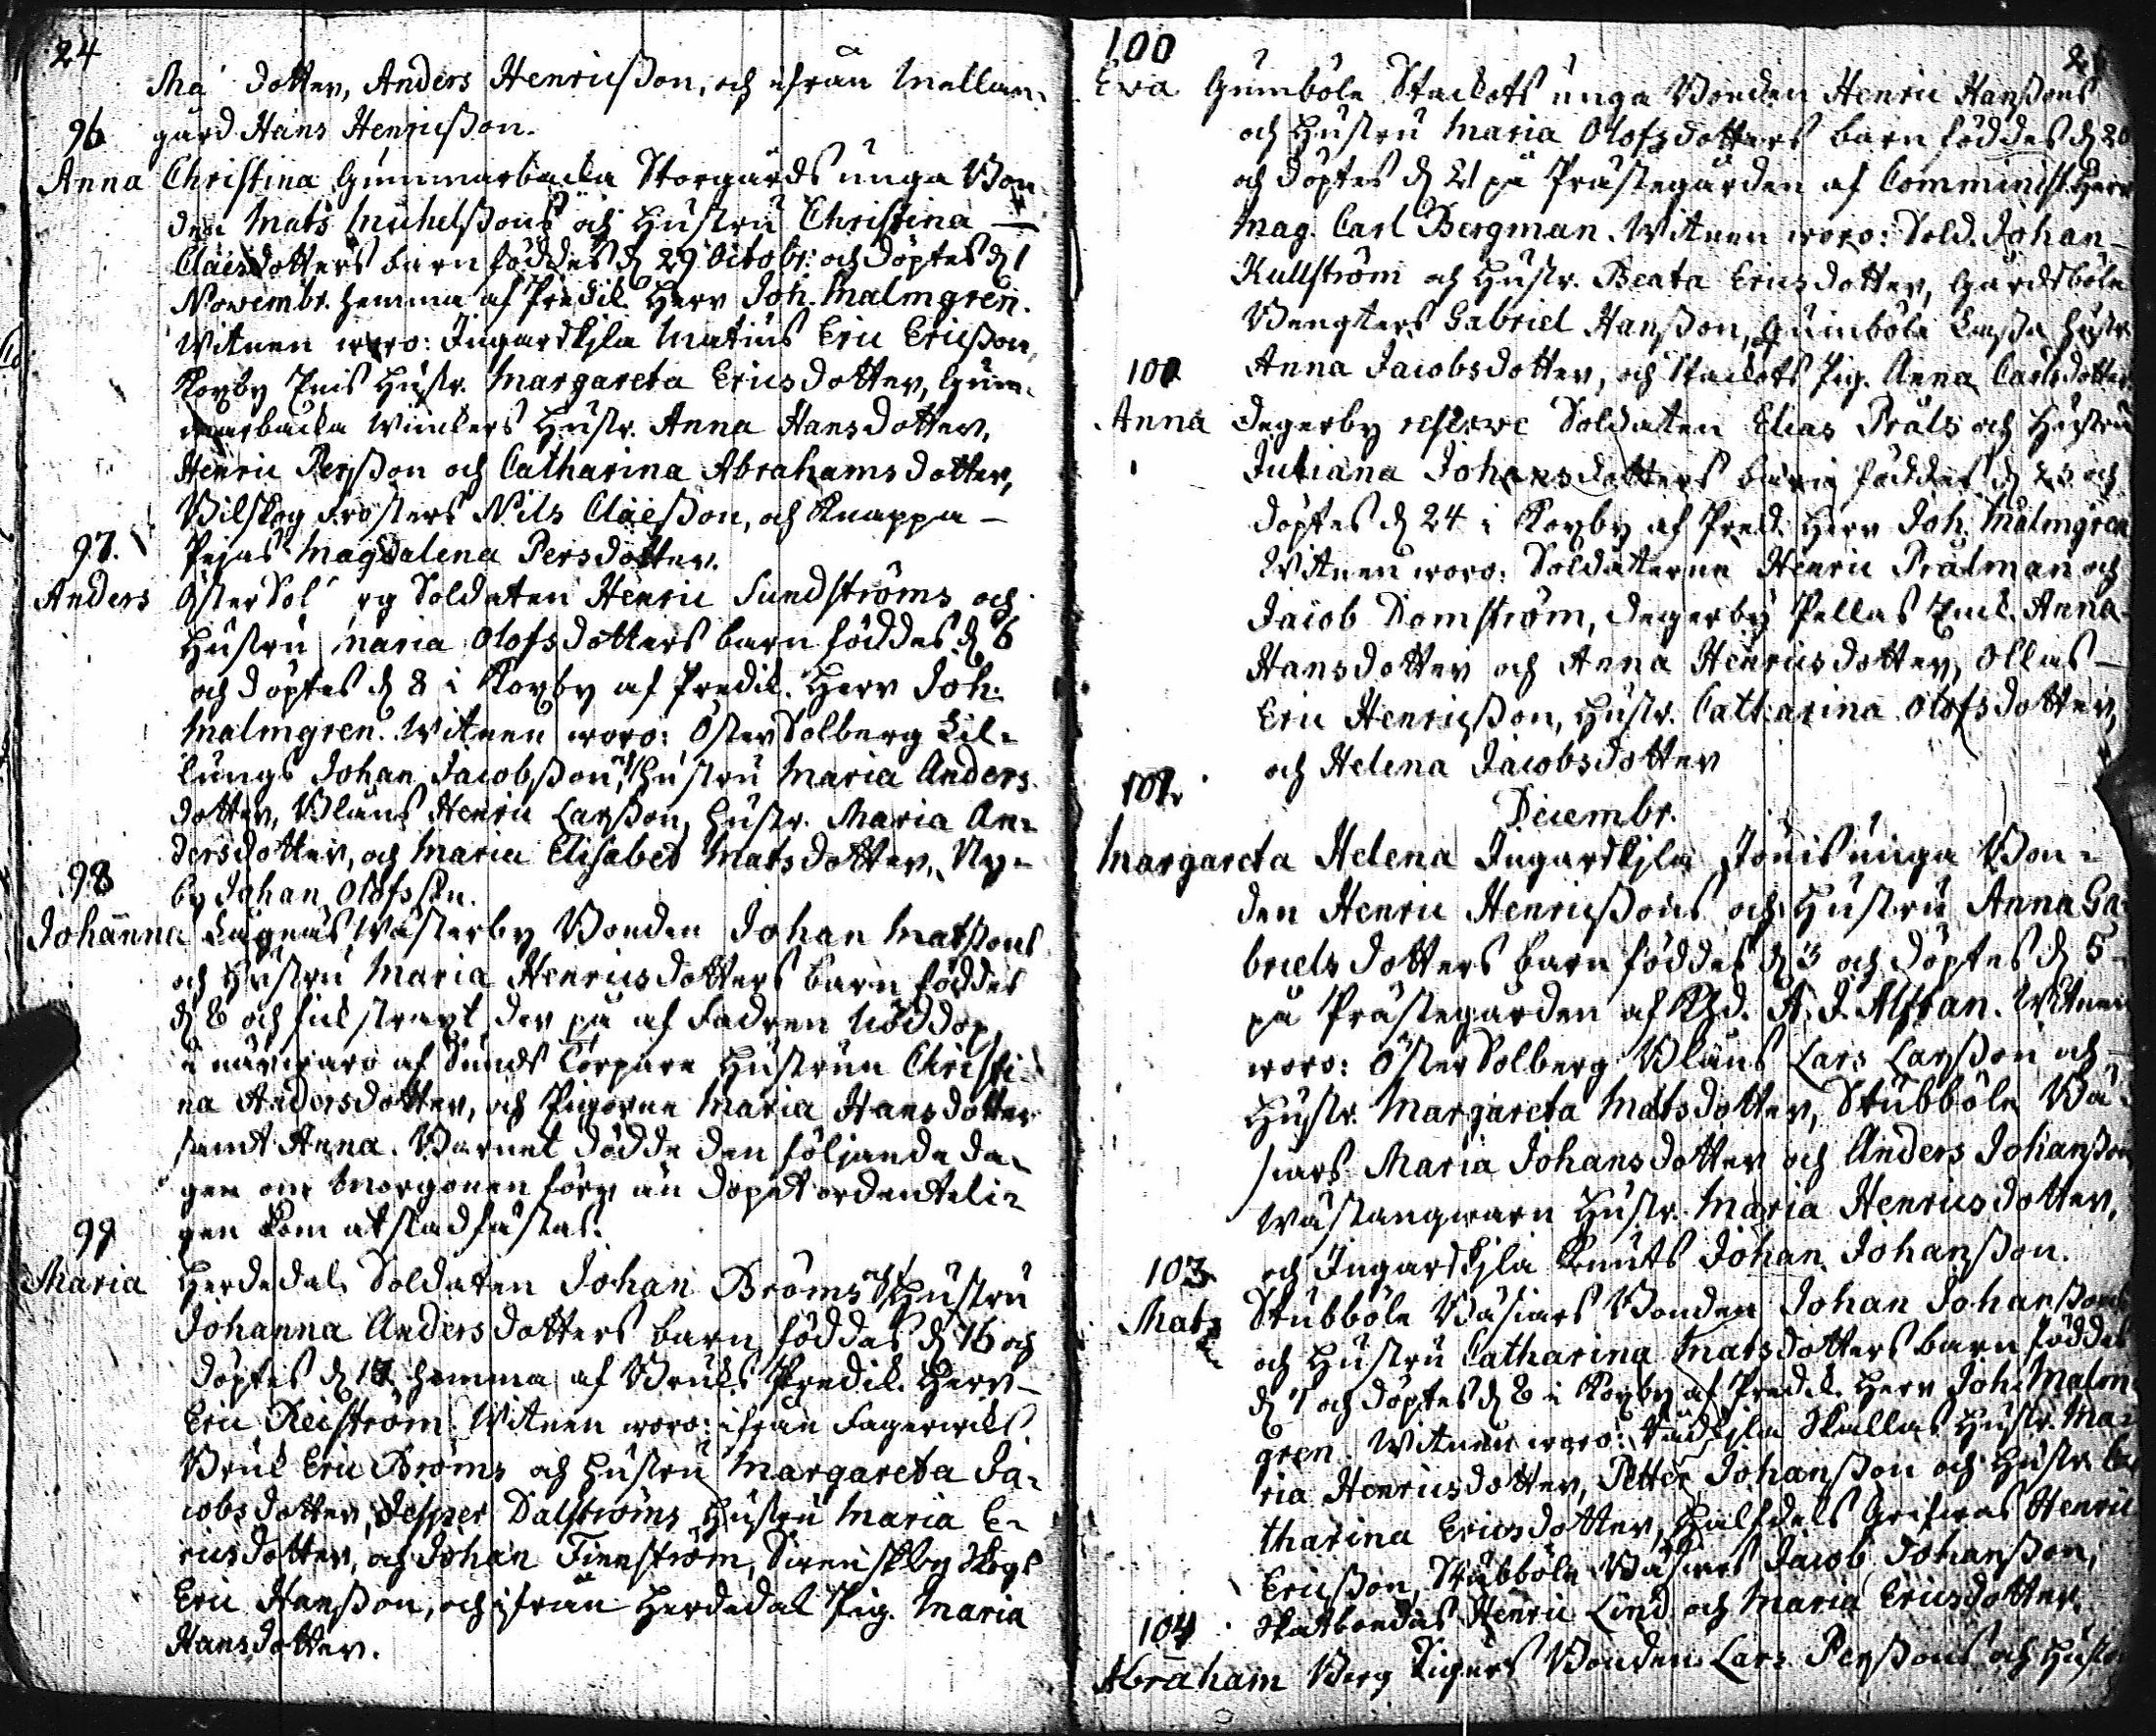 24
Ma dotter, Anders Henricßon, och ifrån Mellan-
gård Hans Henricßon.
96
Anna Christina Gunnarbacka Storgårds unga Bon-
den Mats Michelßons och Hustru Christina
Claesdotters barn föddes d 29 Octobr. och döptes d 1
Novembr. hemma af Predik. Herr Joh. Malmgren.
Witnen woro: Ingardskjla Matius Eric Ericßon,
Kyrby Hustr. Margareta Ericsdotter, Gun-
narbacka Winckers Hustr. Anna Hansdotter,
Henric Perßon och Catharina Abrahamsdotter,
Bilskog Frösters Nils Claeßon, och Knappa-
Pejas Magdalena Persdotter.
97.
Anders ÖsterSol rg Soldaten Henric Sundströms och
Hustru Maria Olofsdotters barn föddes d 6
och döptes d 8 i Kyrby af Predik. Herr Joh.
Malmgren. Witnen woro: ÖsterSolberg Lil-
lungs Johan Jacobßon, Hustru Maria Anders
dotter, Blåus Henric Larßon, Hustr. Maria An-
dersdotter, och Maria Elisabet Matsdotter, Ny-
by Johan Olofsson.
98
Johanna Lågnäs Wästerby Bonden Johan Matßons
och Hustru Maria Henricsdotters barn föddes
d 8 och fick straxt der på af Fadren Nöddop,
i närwaro af Sunds Torpare Hustrun Christi-
na Andersdotter, och Pigorne Maria Hansdotter
samt Anna. Barnet dödde den följande da-
gen om morgonen förr än dopet ordenteli-
gen kom at stadfästas.
99
Maria Herdedal Soldaten Johan Bröms och Hustru
Johanna Andersdotters barn föddes d 16 och
döptes d 17 hemma af Bruks Predik. Herr
Eric Reiström. Witnen woro: ifrån Fagerwiks
Bruk Eric Bröms och Hustru Margareta Ja-
cobsdotter, Jesper Dalströms Hustru Maria E-
ricsdotter, och Johan Finnström, Swenskby Skogs
Eric Hanßon, och ifrån Herdedal Pig. Maria
Hansdotter.
100
Eva Gumböle Stackots unga Bonden Henric Hanßons
och Hustru Maria Olofsdotters barn föddes d 20
och döptes d 21 på Prästegården af Comminist. Herr
Mag. Carl Bergman. Witnen woro: Sold. Johan
Kullström och Hustr. Beata Ericsdotter, Gårdsböle
Bengters Gabriel Hanßon, Gumböle Laßa Hustr.
Anna Jacobsdotter, och Stackots Pig. Anna Carlsdotter.
101
Anna Degerby reserve Soldaten Elias Präls och Hustru
Juliana Johansdotters barn föddes d 23 och
döptes d 24 i Kyrby af Pred. Herr Joh. Malmgren
Witnen woro: Soldaterne Henric Prälman och
Jacob Domström, Degerby Pellas Anna
Hansdotter och Anna Henricsdotter, Ollas
Eric Henricßon, Hustr. Catharina Olofsdotter,
och Helena Jacobsdotter
102.
Decembr.
Margareta Helena Ingardskjla Jönis unga Bon-
den Henric Henricßons och Hustru Anna Ga-
brielsdotters barn föddes d 3 och döptes d 5
på Prästegården af A. J. Alftan. Witnen
woro: ÖsterSolberg Blåus Lars Larßon och
Hustr. Margareta Matsdotter, Stubböle Bä-
siars Maria Johansdotter och Anders Johanßon
Wästangwarn Hustr. Maria Henricsdotter,
och Ingardskjla Knuts Johan Johanßon.
103
Mats Stubböle Bäsiars Bonden Johan Johanßons
och Hustru Catharina Matsdotters barn föddes
d 7 och döptes d 8 i Kyrby af Predik. Herr Joh. Malm-
gren. Witnen woro: Skallas Hustr. Ma-
ria Henricsdotter, Petter Johanßon och Hustr. Ca-
tharina Ericsdotter, Grefwas Henric
Ericßon, Stubböle Bäsiars Jacob Johanßon,
Skatbondas Henric Lind och Maria Ericsdotter.
104
Abraham Berg Bonden Lars Perßons och Hustru